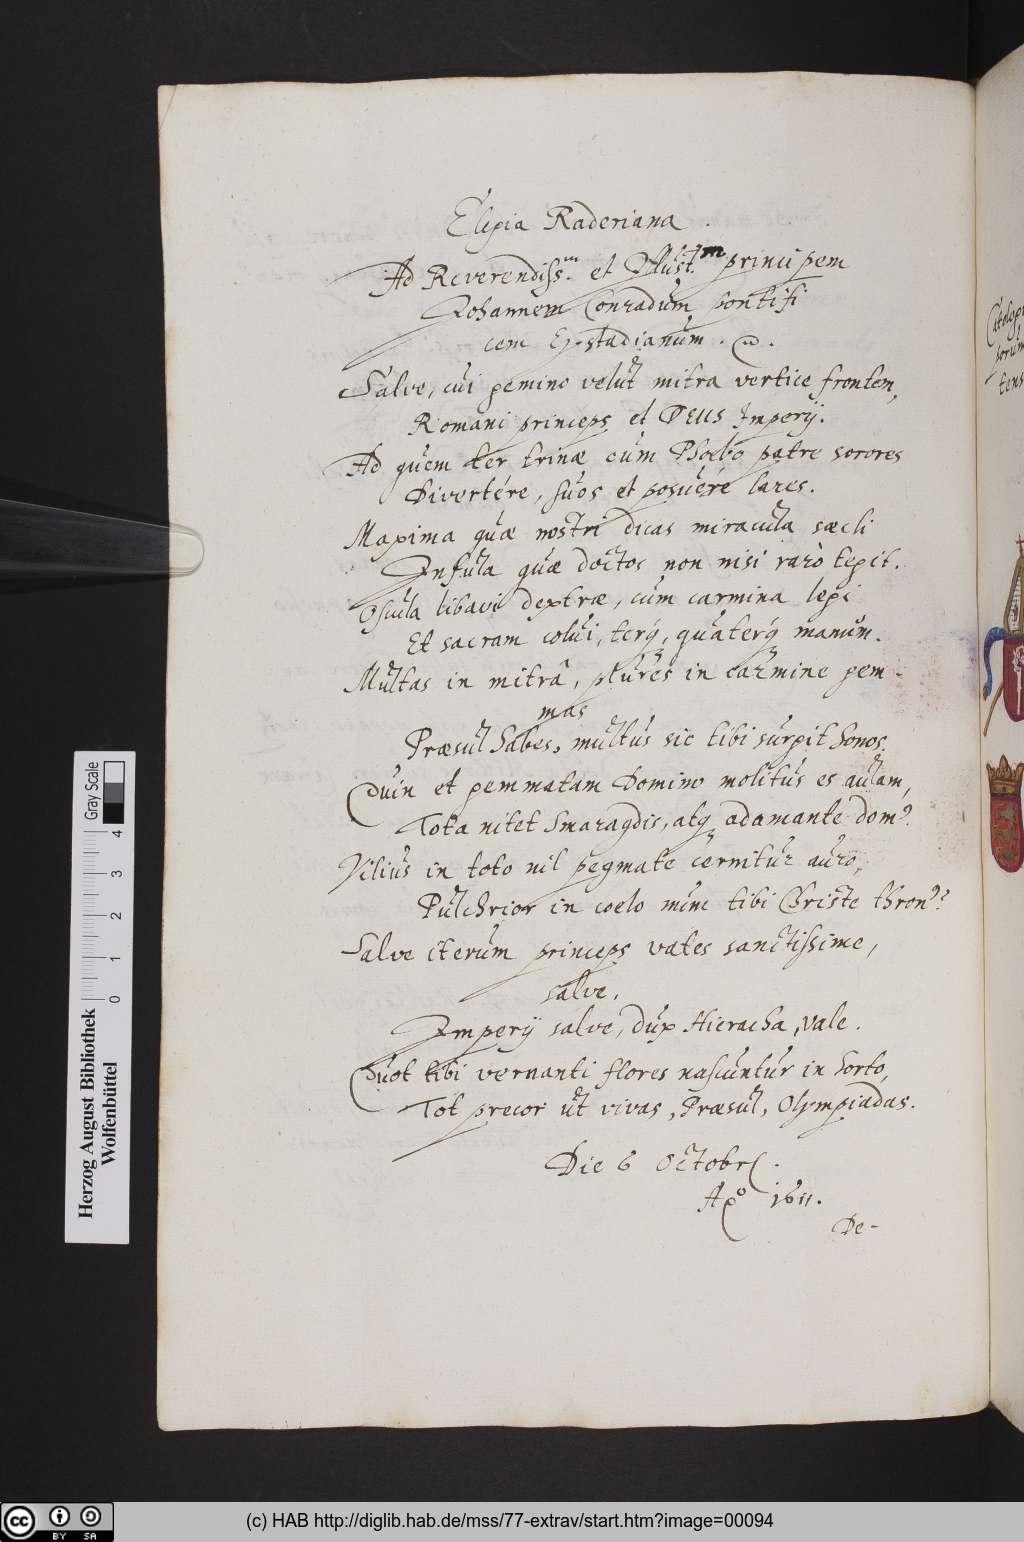 Elegia Raderiana.
Ad Reverendiss.m et Illust.m principem
Johannem Conradum pontifi
cem Eystadianum.
Salve, cui gemino velut mitra vertice frontem,
Romani princeps et DEUS Imperÿ.
Ad quem ter trinæ cum Phœbo patre sorores
Divertére, suos et posuére lares.
Maxima quæ nostri dicas miracula sæcli
Insula quæ doctos non nisi rarò tegit.
Oscula libavi dextræ, cùm carmina legi
Et sacram colui, terq, quaterq manum.
Multas in mitrâ, plures in carmine gem
mas
Præsul habes, multus sic tibi surgit honos.
Quin et gemmatam Domino molitus es aulam,
Tota nitet smaragdis, atq adamante domꝰ.
Vilius in toto nil pegmate cernitur auro,
Pulchrior in coelo num tibi Christe thronꝰ?
Salve iterum princeps vates sanctissime,
salve.
Imperÿ salve, dux Hieracha, vale.
Quot tibi vernanti flores nascuntur in horto,
Tot precor ut vivas, Præsul, Olympiadas.
Die 6 Octobr.
Aº 1611.
De-
Catalog
porum
tens
Gray Scale
0 1 2 3 4
Herzog August Bibliothek
Wolfenbüttel
cc BY SA
(c) HAB http://diglib.hab.de/mss/77-extrav/start.htm?image=00094